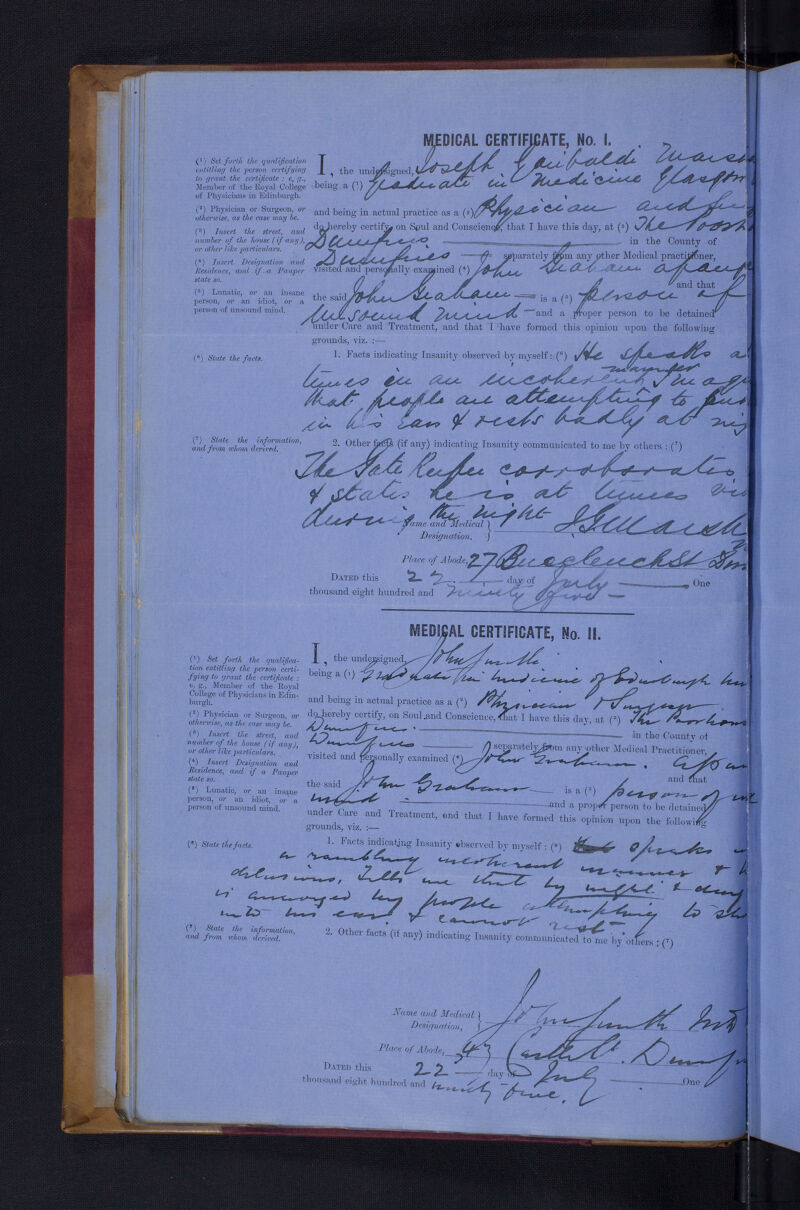 MEDICAL CERTIFICATE, No. I.
(¹) Set forth the qualification
entitling the person certifying
to grant the certificate : e. g.,
Member of the Royal College
of Physicians in Edinburgh.
(²) Physician or Surgeon, or
otherwise, as the case may be.
(³) Insert the street, and
number of the house (if any),
or other like particulars.
(⁴) Insert Designation and
Residence, and if a Pauper
state so.
(⁵) Lunatic, or an insane
person, or an idiot, or a
person of unsound mind.
(⁶) State the facts.
(⁷) State the information,
and from whom derived.
I, the undersigned, Joseph Garibaldi
being a (¹) Graduate in Medicine Glasgow
and being in actual practice as a (²) Physician and
do hereby certify, on Soul and Conscience, that I have this day, at (³) The
Dumfries in the County of
Dumfries separately from any other Medical practitioner,
visited and personally examined (⁴) John Graham a
and that
the said John Graham is a (⁵) person of
unsound mind and a proper person to be detained
under Care and Treatment, and that I have formed this opinion upon the following
grounds, viz. :—
1. Facts indicating Insanity observed by myself : (⁶) He speaks
times in an incoherent manner
that people are attempting to
in his ears & rests badly at
2. Other facts (if any) indicating Insanity communicated to me by others : (⁷)
The Gate Keeper corroborates
& states he is at times
during the night
Name and Medical
Designation,
Place of Abode, 27 Buccleuch St
DATED this 22 day of July One
thousand eight hundred and ninety five
MEDICAL CERTIFICATE, No. II.
(¹) Set forth the qualifica-
tion entitling the person certi-
fying to grant the certificate :
e. g., Member of the Royal
College of Physicians in Edin-
burgh.
(²) Physician or Surgeon, or
otherwise, as the case may be.
(³) Insert the street, and
number of the house (if any),
or other like particulars.
(⁴) Insert Designation and
Residence, and if a Pauper
state so.
(⁵) Lunatic, or an insane
person, or an idiot, or a
person of unsound mind.
(⁶) State the facts.
(⁷) State the information,
and from whom derived.
I, the undersigned, John Smith
being a (¹) Graduate in medicine of Edinburgh
and being in actual practice as a (²) Physician & Surgeon
do hereby certify, on Soul and Conscience, that I have this day, at (³) The
Dumfries in the County of
Dumfries separately from any other Medical Practitioner,
visited and personally examined (⁴) John Graham. a
and that
the said John Graham is a (⁵) person of
mind and a proper person to be detained
under Care and Treatment, and that I have formed this opinion upon the following
grounds, viz. :—
1. Facts indicating Insanity observed by myself : (⁶) speaks
a rambling incoherent manner &
delusions. Tells me that by night & day
is annoyed by people attempting to
into his ears & cannot rest
2. Other facts (if any) indicating Insanity communicated to me by others : (⁷)
Name and Medical
Designation,
John Smith MD
Place of Abode, Castle St.
DATED this 22 day of July One
thousand eight hundred and ninety five.